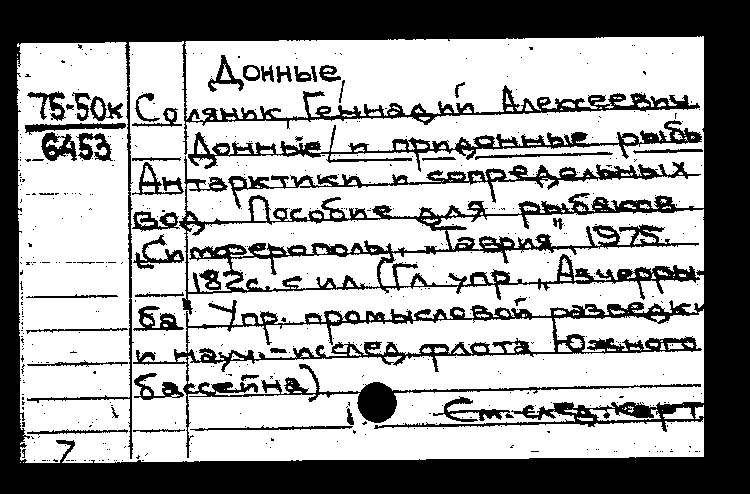 Донные
75-50к Соляник, Геннадий Алексеевич
6453 Донные и придонные рыбы
Антарктики и сопредельных
вод. Пособие для рыбаков.
Симферополь, "Таврия", 1975.
182с. с ил. (Гл. упр. "Азчерры-
ба". Упр. промысловой разведки
и науч.-исслед. флота Южного
бассейна).
См. след. карт.
7